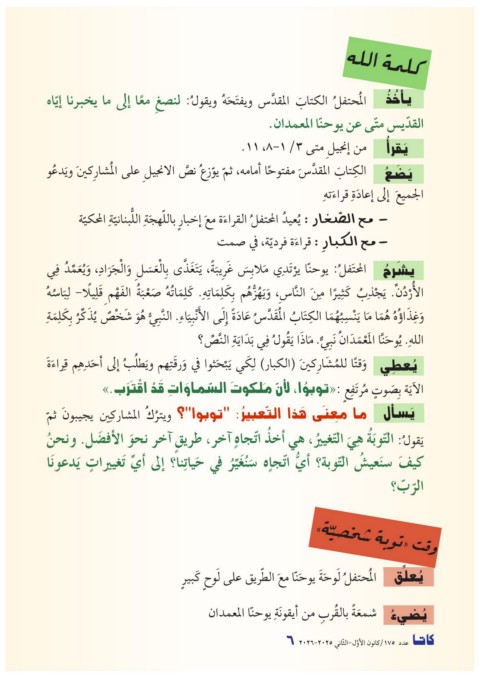 كلمة الله
يأخُذُ المُحتفلُ الكتابَ المقدَّس ويفتَحَهُ ويقولُ: لنصغِ معًا إلى ما يخبرنا إيّاه
القدّيس متّى عن يوحنّا المعمدان.
يَقرأُ من إنجيلِ متى ٣/ ١-٨، ١١.
يَضَعُ الكِتابَ المقدَّسَ مفتوحًا أمامه، ثمّ يوّزعُ نصَّ الانجيلِ على المُشاركينَ ويَدعُو
الجميعَ إلى إعادَةِ قراءَتِهِ
– مع الصّغار: يُعيدُ المحتفلُ القراءةَ معَ إخبارٍ باللّهجةِ اللّبنانيّةِ المحكيّة
– مع الكبار: قراءة فرديّة، في صمت
يشرحُ المحتَفلُ: يوحنّا يرْتَدِي مَلابِسَ غَرِيبَةً، يَتَغَذَّى بِالْعَسَلِ وَالْجَرَادِ، وَيُعَمِّدُ فِي
الأُرْدُنّ. يَجْذِبُ كَثِيرًا مِنَ النَّاسِ، وَيَهُزُّهُم بِكَلِمَاتِهِ. كَلِمَاتُهُ صَعْبَةُ الفَهْمِ قَلِيلًا- لِبَاسُهُ
وَغِذَاؤُهُ هُمَا مَا يَنْسِبُهُمَا الكِتَابُ الْمُقَدَّسُ عَادَةً إِلَى الأَنْبِيَاءِ. النَّبِيُّ هُوَ شَخْصٌ يُذَكِّرُ بِكَلِمَةِ
اللهِ. يُوحَنَّا الْمَعْمَدَانُ نَبِيٌّ. مَاذَا يَقُولُ فِي بَدَايَةِ النَّصِّ؟
يُعطِي وَقتًا للمُشَارِكينَ (الكبار) لِكَي يَبْحَثوا في وَرَقتِهم ويَطلُبُ إلى أحَدِهِم قِراءَةَ
الآيَة بِصَوتٍ مُرتَفِعٍ: «توبوُا، لأنَ ملَكوتَ السَّماوَات قَدْ اقْتَرَب.»
يَسأل ما معنَى هَذا التَّعبيرُ: "توبوا"؟ ويترُكُ المشاركين يجيبونَ ثمّ
يَقولُ: التّوبَةُ هِيَ التّغييرُ، هي أخذُ اتجاهٍ آخر، طريقٍ آخر نحوَ الأفضل. ونحنُ
كيفَ سنَعيشُ التّوبة؟ أيُّ اتّجاهٍ سَنُغَيِّرُ في حَيَاتِنا؟ إلى أيِّ تغييراتٍ يَدعونَا
الرّبّ؟
وقت «توبة شخصيّة»
يُعلّق المُحتفِلُ لَوحَةَ يوحَنّا معَ الطّريق على لَوحٍ كَبيرٍ
يُضيءُ شمعَةً بالقُربِ من أيقونَةِ يوحنّا المعمدان
كاحا عدد ١٧٥/كانون الأوّل-الثّاني ٢٠٢٥-٢٠٢٦ ٦